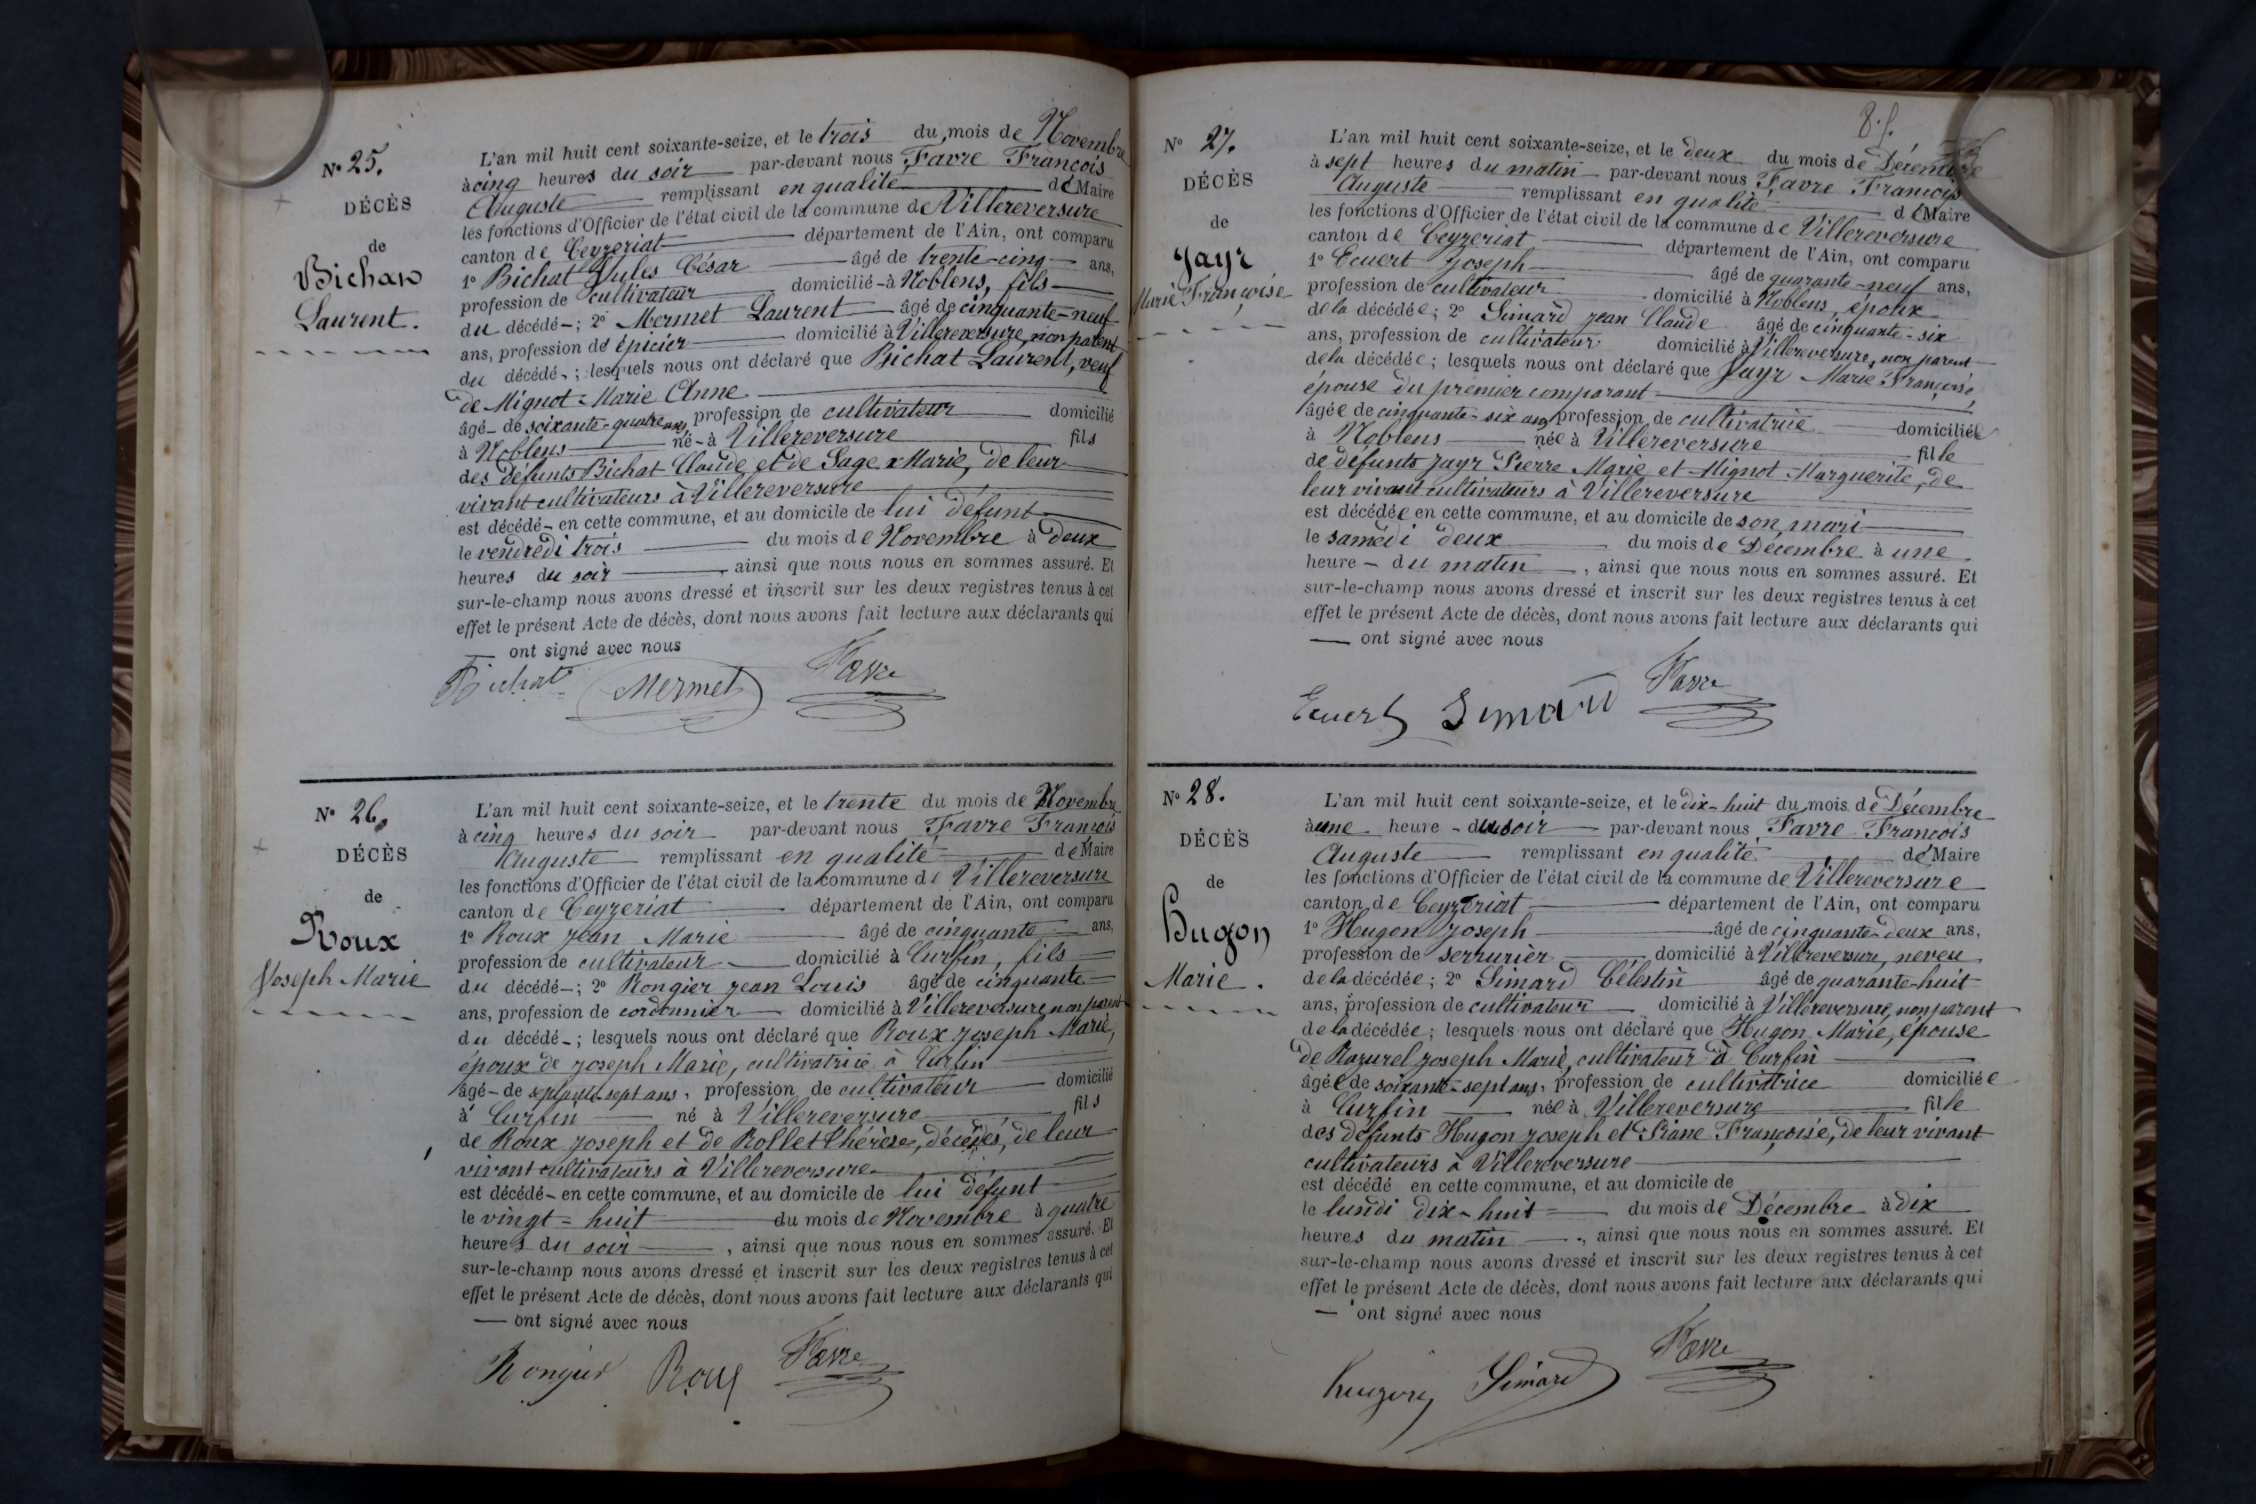 N° 25.
DÉCÈS
de
Bichat
Laurent.
L'an mil huit cent soixante-seize, et le trois du mois de Novembre
à cinq heures du soir par-devant nous Favre François
Auguste remplissant en qualité de Maire
les fonctions d'Officier de l'état civil de la commune de Villereversure
canton de Ceyzeriat département de l'Ain, ont comparu
1° Bichat Jules César âgé de trente-cinq ans,
profession de cultivateur domicilié à Noblens, fils
du décédé; 2° Mermet Laurent âgé de cinquante-neuf
ans, profession de épicier domicilié à Villereversure, non parent
du décédé; lesquels nous ont déclaré que Bichat Laurent, veuf
de Mignot Marie Anne
âgé de soixante-quatre ans, profession de cultivateur domicilié
à Noblens né à Villereversure fils
des défunts Bichat Claude et de Sage Marie, de leur
vivant cultivateurs à Villereversure
est décédé en cette commune, et au domicile de lui défunt
le vendredi trois du mois de Novembre à deux
heures du soir, ainsi que nous nous en sommes assuré. Et
sur-le-champ nous avons dressé et inscrit sur les deux registres tenus à cet
effet le présent Acte de décès, dont nous avons fait lecture aux déclarants qui
ont signé avec nous
Bichat Mermet Favre
N° 26.
DÉCÈS
de
Roux
Joseph Marie
L'an mil huit cent soixante-seize, et le trente du mois de Novembre
à cinq heures du soir par-devant nous Favre François
Auguste remplissant en qualité de Maire
les fonctions d'Officier de l'état civil de la commune de Villereversure
canton de Ceyzeriat département de l'Ain, ont comparu
1° Roux Jean Marie âgé de cinquante ans,
profession de cultivateur domicilié à Curfin, fils
du décédé; 2° Rongier Jean Louis âgé de cinquante
ans, profession de cordonnier domicilié à Villereversure non parent
du décédé; lesquels nous ont déclaré que Roux Joseph Marie,
époux de Joseph Marie, cultivatrice à Curfin
âgé de septante-sept ans, profession de cultivateur domicilié
à Curfin né à Villereversure fils
de Roux Joseph et de Rollet Thérèse, décédés, de leur
vivant cultivateurs à Villereversure
est décédé en cette commune, et au domicile de lui défunt
le vingt-huit du mois de Novembre à quatre
heures du soir, ainsi que nous nous en sommes assuré. Et
sur-le-champ nous avons dressé et inscrit sur les deux registres tenus à cet
effet le présent Acte de décès, dont nous avons fait lecture aux déclarants qui
ont signé avec nous
Rongier Roux Favre
N° 27.
DÉCÈS
de
Jayr
Marie Françoise
L'an mil huit cent soixante-seize, et le deux du mois de Décembre
à sept heures du matin par-devant nous Favre François
Auguste remplissant en qualité de Maire
les fonctions d'Officier de l'état civil de la commune de Villereversure
canton de Ceyzeriat département de l'Ain, ont comparu
1° Ecuert Joseph âgé de quarante-neuf ans,
profession de cultivateur domicilié à Noblens, époux
de la décédée; 2° Simard Jean Claude âgé de cinquante-six
ans, profession de cultivateur domicilié à Villereversure, non parent
de la décédée; lesquels nous ont déclaré que Jayr Marie Françoise,
épouse du premier comparant
âgée de cinquante-six ans, profession de cultivatrice domiciliée
à Noblens née à Villereversure fille
de défunts Jayr Pierre Marie et Mignot Marguerite, de
leur vivant cultivateurs à Villereversure
est décédée en cette commune, et au domicile de son mari
le samedi deux du mois de Décembre à une
heure du matin, ainsi que nous nous en sommes assuré. Et
sur-le-champ nous avons dressé et inscrit sur les deux registres tenus à cet
effet le présent Acte de décès, dont nous avons fait lecture aux déclarants qui
ont signé avec nous
Ecuert Simard Favre
N° 28.
DÉCÈS
de
Hugon
Marie.
L'an mil huit cent soixante-seize, et le dix-huit du mois de Décembre
à une heure du soir par-devant nous Favre François
Auguste remplissant en qualité de Maire
les fonctions d'Officier de l'état civil de la commune de Villereversure
canton de Ceyzeriat département de l'Ain, ont comparu
1° Hugon Joseph âgé de cinquante-deux ans,
profession de serrurier domicilié à Villereversure, neveu
de la décédée; 2° Simard Célestin âgé de quarante-huit
ans, profession de cultivateur domicilié à Villereversure, non parent
de la décédée; lesquels nous ont déclaré que Hugon Marie, épouse
de Razurel Joseph Marie, cultivateur à Curfin
âgée de soixante-sept ans, profession de cultivatrice domiciliée
à Curfin née à Villereversure fille
des défunts Hugon Joseph et Piane Françoise, de leur vivant
cultivateurs à Villereversure
est décédé en cette commune, et au domicile de
le lundi dix-huit du mois de Décembre à dix
heures du matin, ainsi que nous nous en sommes assuré. Et
sur-le-champ nous avons dressé et inscrit sur les deux registres tenus à cet
effet le présent Acte de décès, dont nous avons fait lecture aux déclarants qui
ont signé avec nous
hugon Simard Favre